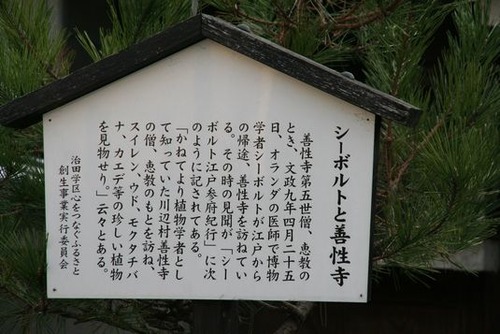 シーボルトと善性寺
善性寺第五世僧、恵教の
とき、文政九年四月二十五
日、オランダの医師で博物
学者シーボルトが江戸から
の帰途、善性寺を訪ねてい
る。その時の見聞が、「シー
ボルト江戸参府紀行」に次
のように記されてある。
「かねてより植物学者とし
て知っていた川辺村善性寺
の僧、恵教のもとを訪ね、
スイレン、ウド、モクタチバ
ナ、カエデ等の珍しい植物
を見物せり。」云々とある。
治田学区心をつなぐふるさと
創生事業実行委員会